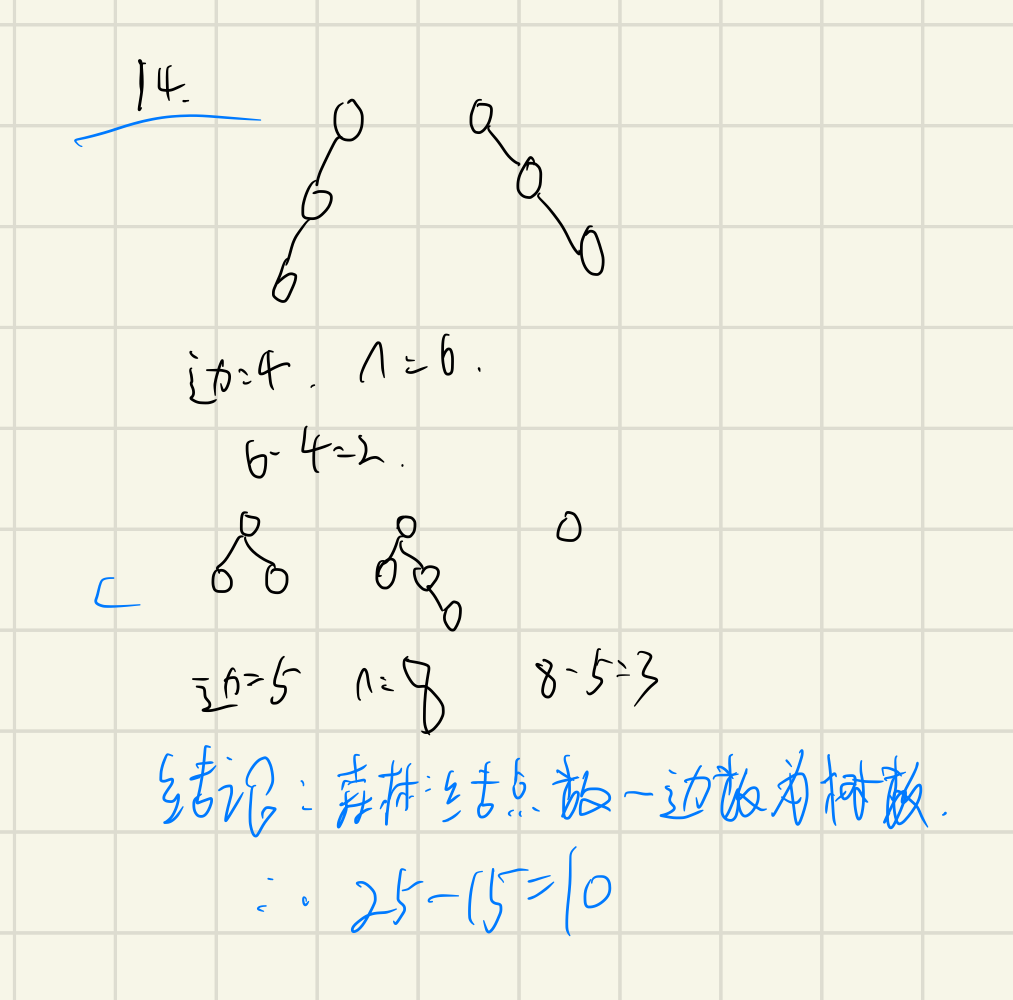 14.
边=4. n=6.
6-4=2.
C
边=5 n=8 8-5=3
结论:森林:结点数-边数为树数.
∴ 25-15=10